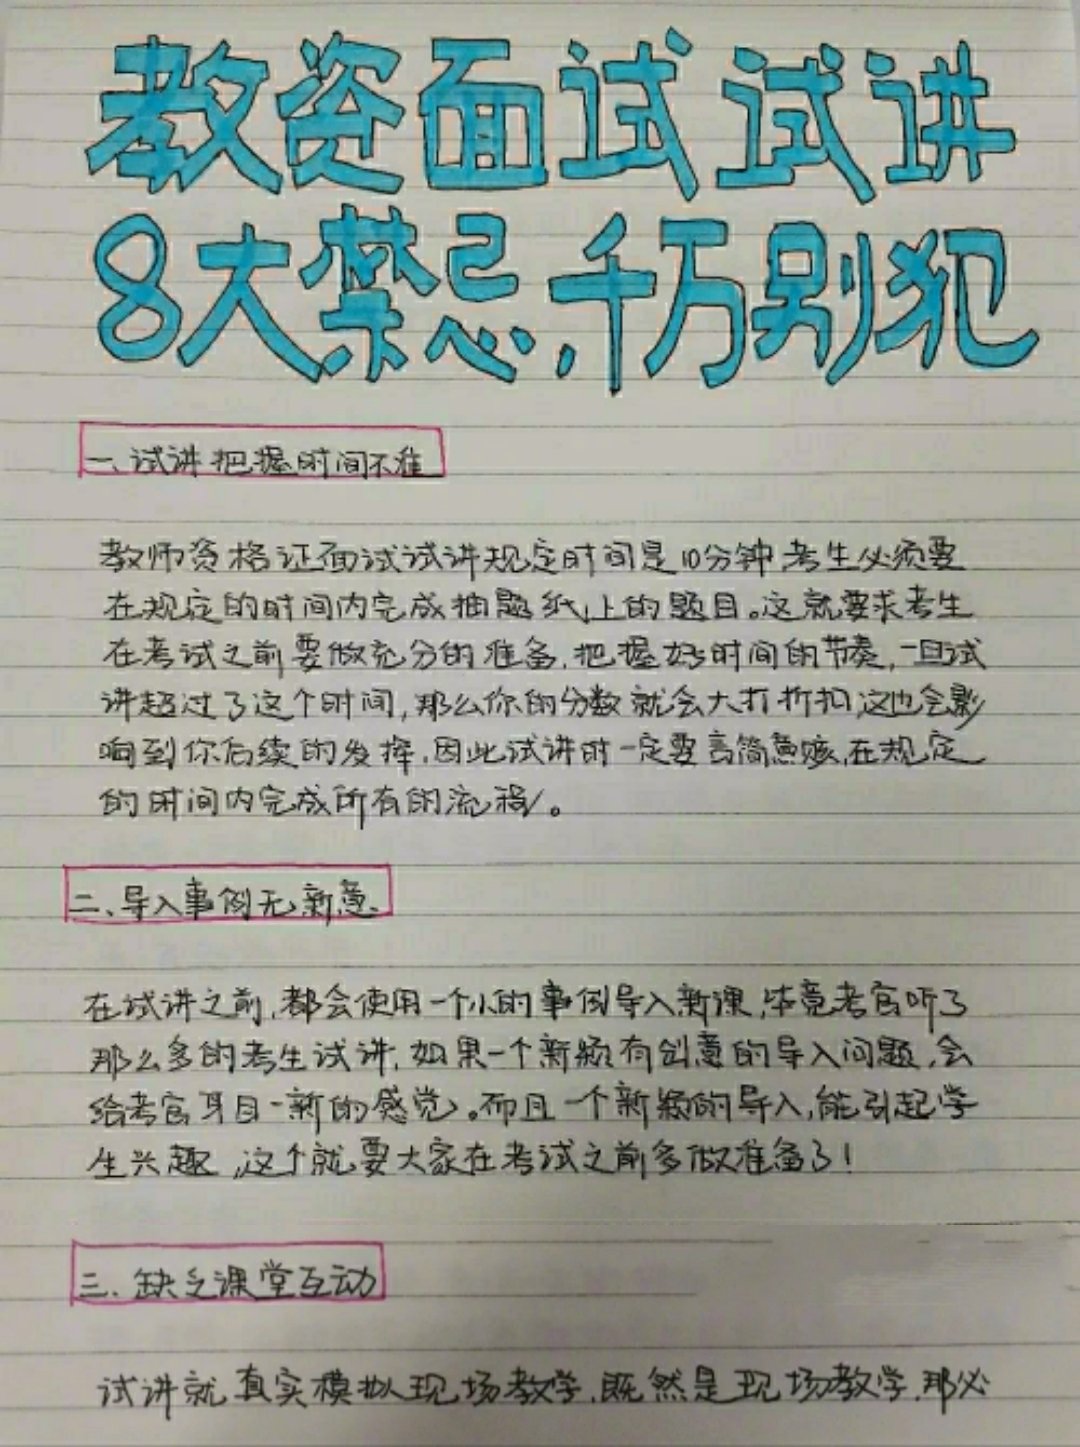 教资面试试讲
8大禁忌,千万别犯
一、试讲把握时间不准
教师资格证面试试讲规定时间是10分钟,考生必须要
在规定的时间内完成抽题纸上的题目。这就要求考生
在考试之前要做充分的准备,把握好时间的节奏,一旦试
讲超过了这个时间,那么你的分数就会大打折扣,这也会影
响到你后续的发挥,因此试讲时一定要言简意赅,在规定
的时间内完成所有的流程。
二、导入事例无新意
在试讲之前,都会使用一个小的事例导入新课,毕竟考官听了
那么多的考生试讲,如果一个新颖有创意的导入问题,会
给考官耳目一新的感觉。而且一个新颖的导入,能引起学
生兴趣,这个就要大家在考试之前多做准备了!
三、缺乏课堂互动
试讲就真实模拟现场教学,既然是现场教学,那必